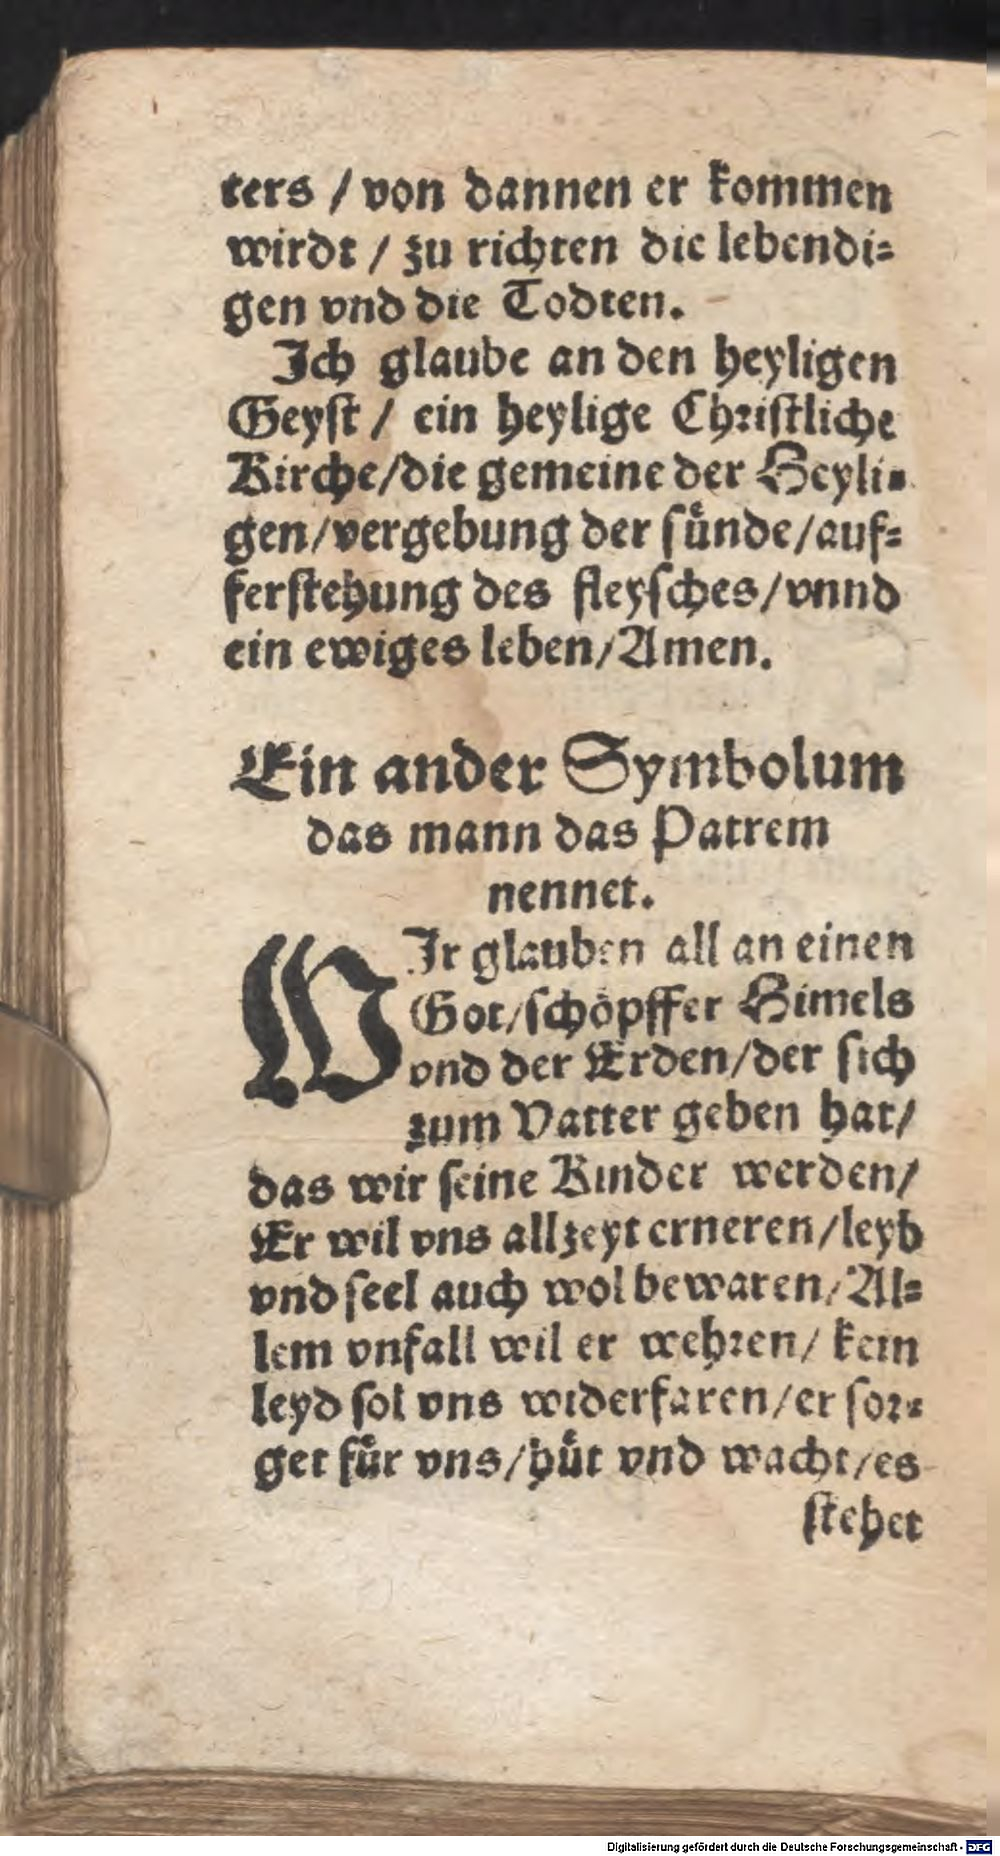 ters / von dannen er kommen
wirdt / zu richten die lebendi⸗
gen vnd die Todten.
Ich glaube an den heyligen
Geyſt / ein heylige Chꝛiſtliche
Kirche/die gemeine der Heyli⸗
gen/vergebung der ſuͤnde/auf⸗
ferſtehung des fleyſches/vnnd
ein ewiges leben/Amen.
Ein ander Symbolum
das mann das Patrem
nennet.
WIr glauben all an einen
Got/ſchoͤpffer Himels
vnd der Erden/der ſich
zum Vatter geben hat/
das wir ſeine Kinder werden/
Er wil vns allzeyt erneren/leyb
vnd ſeel auch wol bewaren/Al⸗
lem vnfall wil er wehꝛen/ kein
leyd ſol vns widerfaren/er ſoꝛ⸗
get fuͤr vns/huͤt vnd wacht/es
ſtehet
Digitalisierung gefördert durch die Deutsche Forschungsgemeinschaft - DFG